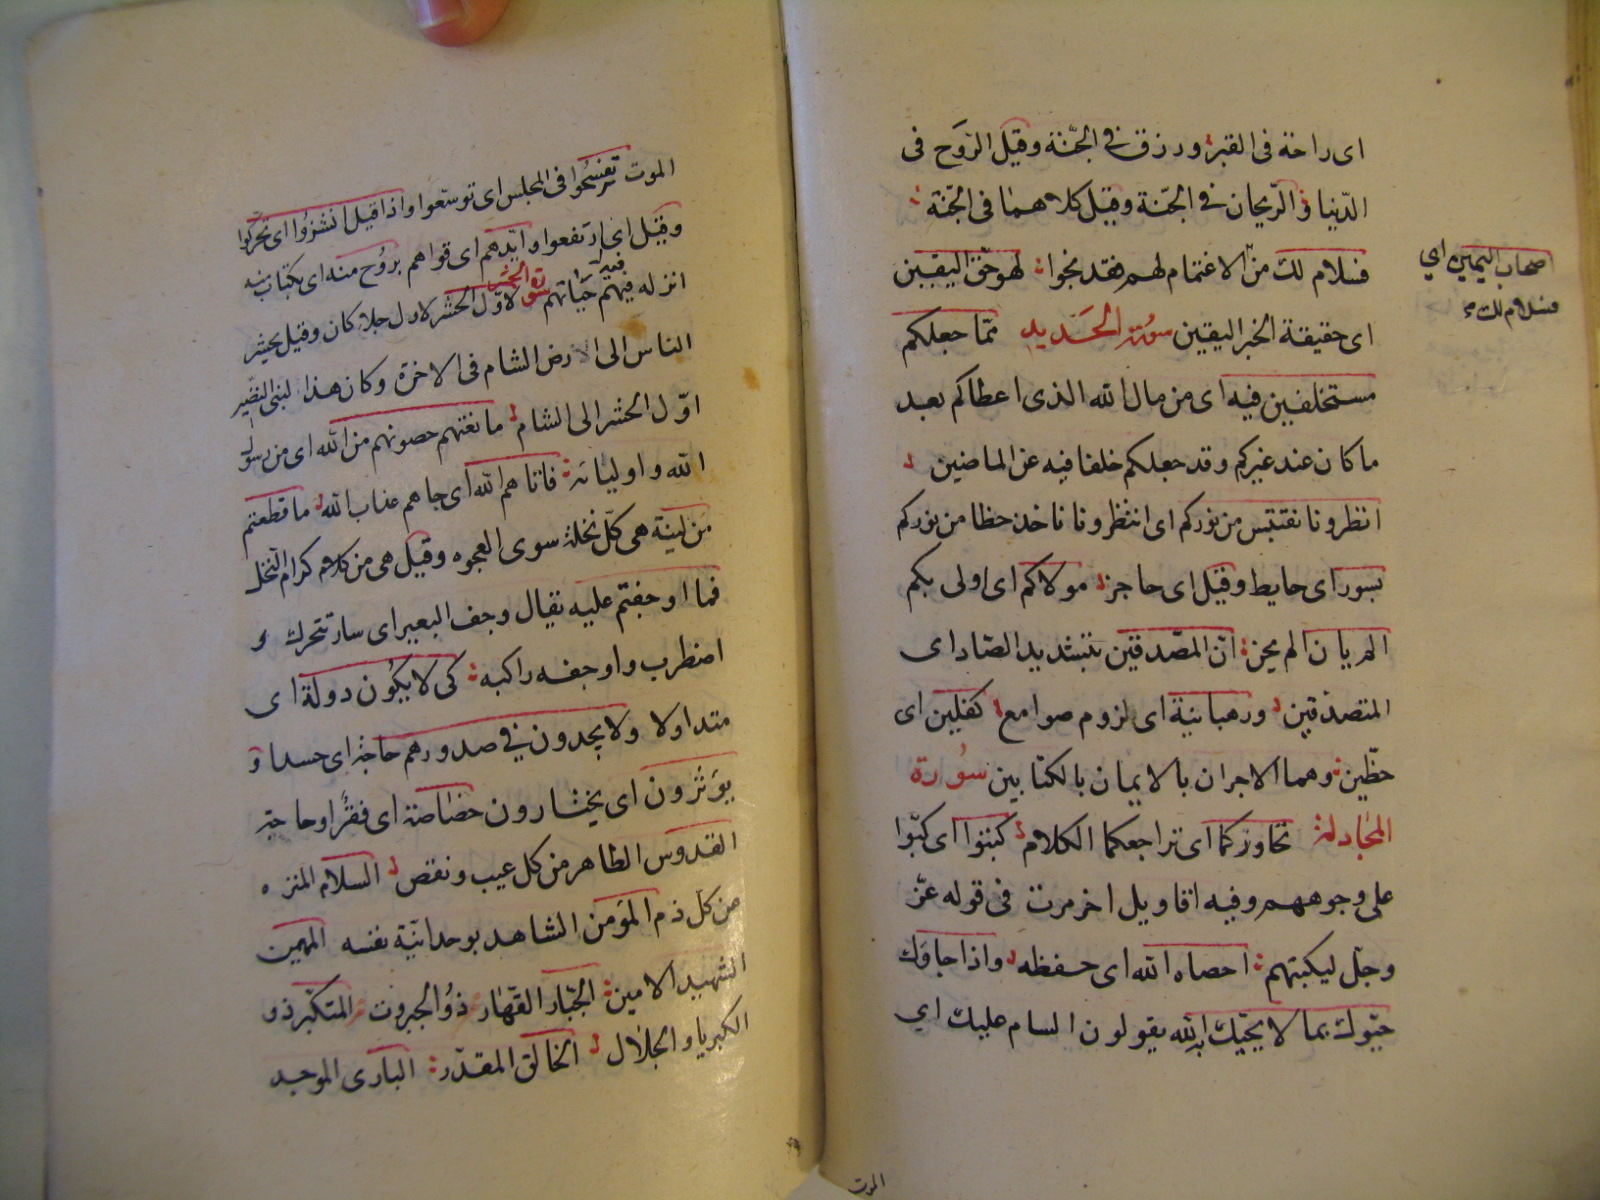 اى راحة فى القبر ورزق فى الجنّة وقيل الرَّوح فى
الدّنيا والرّيحان فى الجنّة وقيل كلاهما فى الجنّة
فسلام لك من الاغتمام لهم فقد نجوا لهو حقّ اليقين
اصحاب اليمين اي
فسلام لك
اى حقيقة الخبر اليقين سورة الحديد ممّا جعلكم
مستخلفين فيه اى من مال الله الذى اعطاكم بعد
ما كان عند غيركم وقد جعلكم خلفا فيه عن الماضين
انظرونا نقتبس من نوركم اى انتظرونا ناخذ حظا من نوركم
بسور اى حايط وقيل اى حاجز مولاكم اى اولى بكم
الم يان الم يحن انّ المصّدقين بتشديد الصّاد اى
المتصدّقين ورهبانيّة اى لزوم صوامع كفلين اى
حظّين وهما الاجران بالايمان بالكتابين سُورة
المجادلة تحاوركما اى تراجعكما الكلام كبتوا اى كبّوا
على وجوههم وفيه اقاويل اخر مرت فى قوله عزّ
وجلّ ليكبتهم احصاه الله اى حفظه واذا جاؤك
حيّوك بما لا يحيّك به الله يقولون السام عليك اي
الموت
الموت تفسّحوا فى المجلس اى توسّعوا واذا قيل انشزُوا اى تحركوا
وقيل اى ارتفعوا وايّدهم اى قواهم بروُح منه اى بكتاب
انزله فيهم حياتهم سورة الحشر لاوّل الحشر لاول جلا كان وقيل يحشر
الناس الى الارض الشام فى الاخرة وكان هذا لبنى النضير
اوّل الحشر الى الشام مانعتهم حصونهم من الله اى من رسول
الله واوليائه فاتاهم الله اى جاهم عذاب الله ما قطعتم
من لينة هى كلّ نخلة سوى العجوه وقيل هى من كرام النخل
فما اوجفتم عليه يقال وجف البعير اى سار تتحرك و
اضطرب واوجفه راكبه كى لا يكوُن دولة اى
متداولا ولا يجدون فى صدورهم حاجة اى حسدا و
يؤثرون اى يختارون خصاصة اى فقرٌ او حاجة
القدوس الطاهر من كل عيب ونقص السلام المنزه
من كل ذم المؤمن الشاهد بوحدانيّة نفسه المهيمن
الشهيد الامين الجبّار القهّار ذوُ الجبروت المتكبّر ذو
الكبريا والجلال الخالق المقدّر البارى الموجد